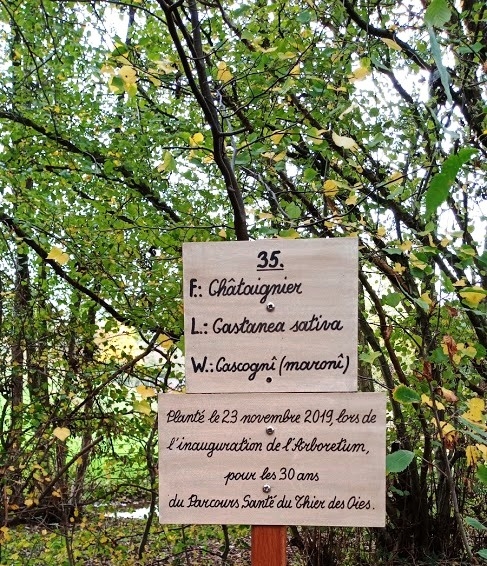 35.
F.: Châtaignier
L.: Castanea sativa
W.: Cascognî (maronî)
Planté le 23 novembre 2019, lors de
l'inauguration de l'Arboretum,
pour les 30 ans
du Parcours Santé du Thier des Oies.